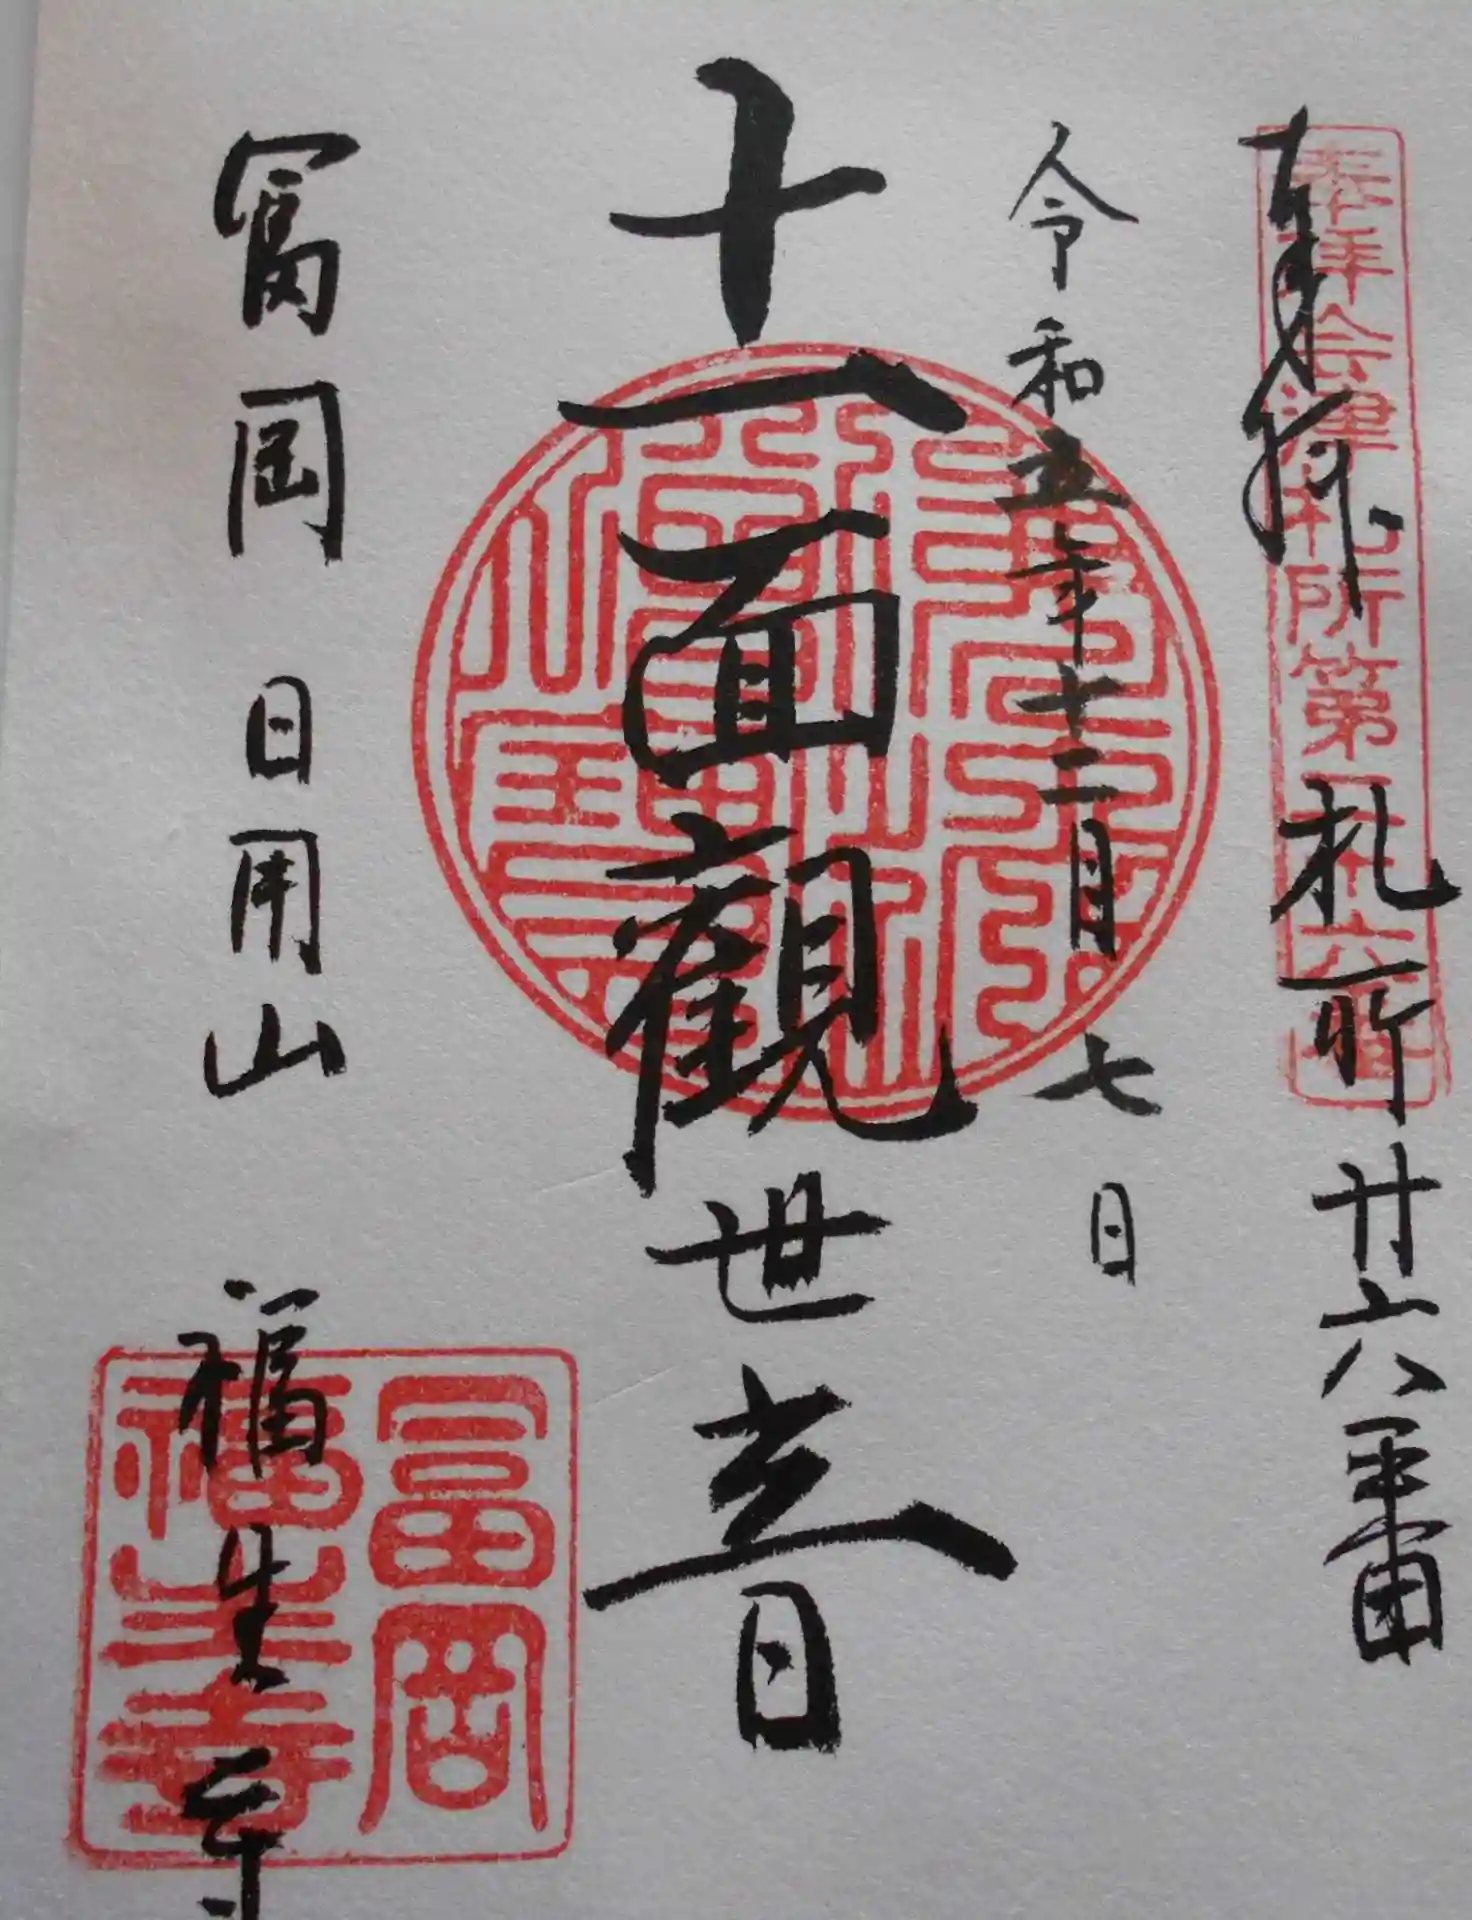 奉拝 札所廿六番
奉拝会津札所第二十六番
令和五年十二月七日
十一面観世音
冨岡 日用山 福生寺
冨岡
福生寺